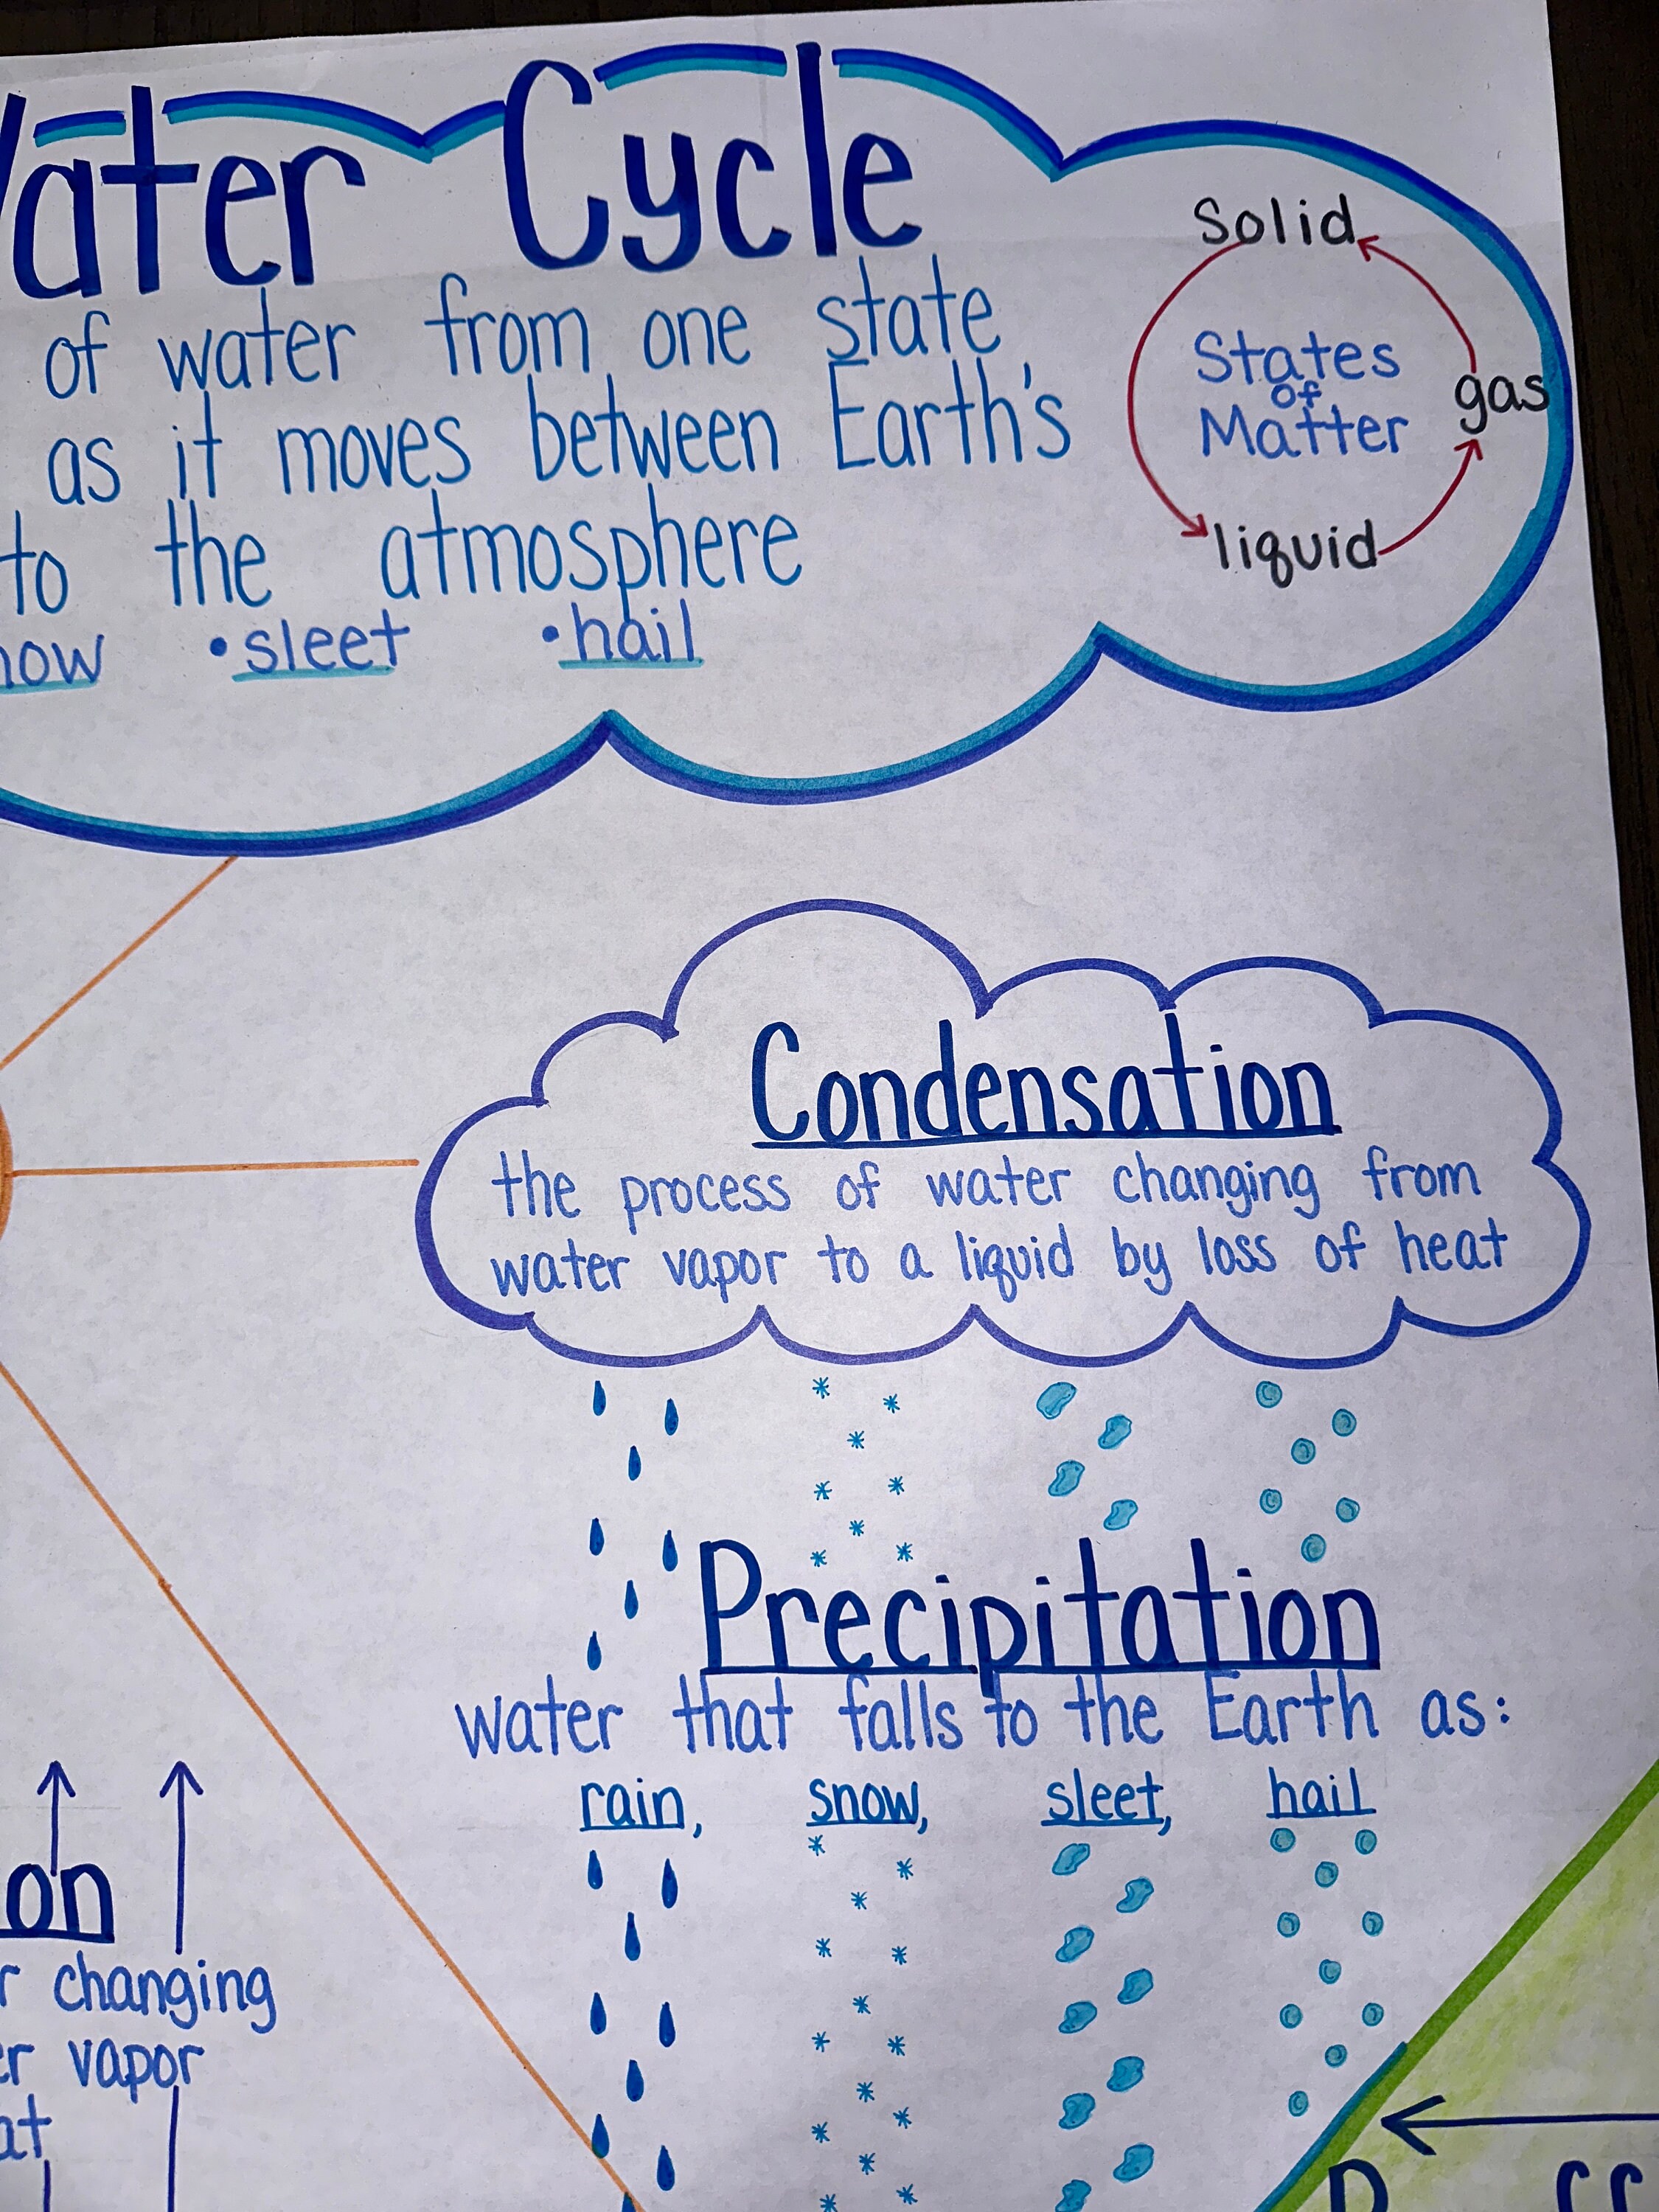 Water Cycle
of water from one state
as it moves between Earth's
to the atmosphere
•sleet •hail
Solid
States
of
Matter
gas
liquid
Condensation
the process of water changing from
water vapor to a liquid by loss of heat
Precipitation
water that falls to the Earth as:
rain, snow, sleet, hail
changing
vapor